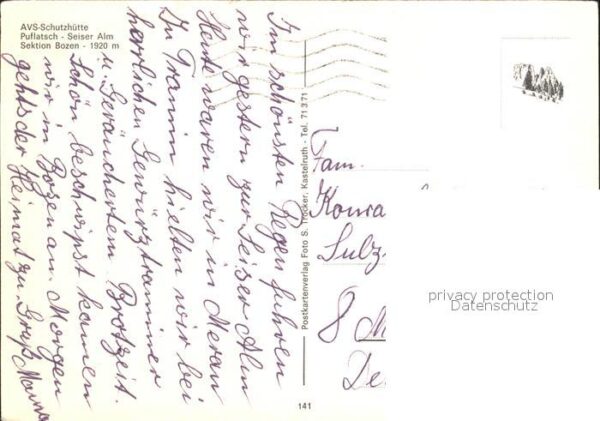 AVS-Schutzhütte
Puflatsch - Seiser Alm
Sektion Bozen - 1920 m
Im schönsten Regen fuhren
wir gestern zur Seiser Alm
Heute waren wir in Meran
In Tramin hielten wir bei
herrlichen Gewürztraminer
u. Geräuchertem Brotzeit.
Schön beschwipst kamen
wir in Bozen an. Morgen
gehts der Heimat zu. Gruß
Postkartenverlag Foto S. Trocker, Kastelruth - Tel. 71371
Fam.
Konra
Sulz
8 M
De
141
privacy protection
Datenschutz